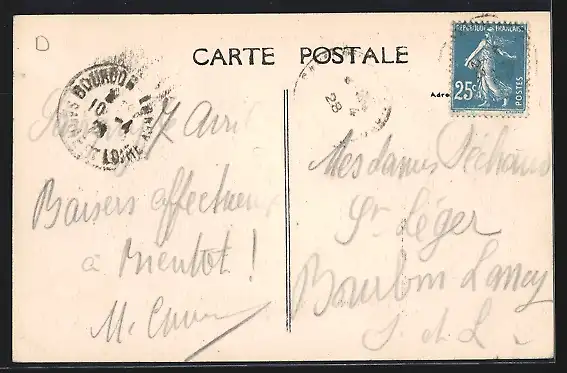 D
CARTE POSTALE
REPUBLIQUE FRANÇAISE
25c
POSTES
Adre
BOURBON LANCY
10
28
SAONE ET LOIRE
4
28
7 Avril
Baisers affectueux
à Bientôt !
M.
Mesdames Déchaud
St Léger
Bourbon Lancy
S. et L.